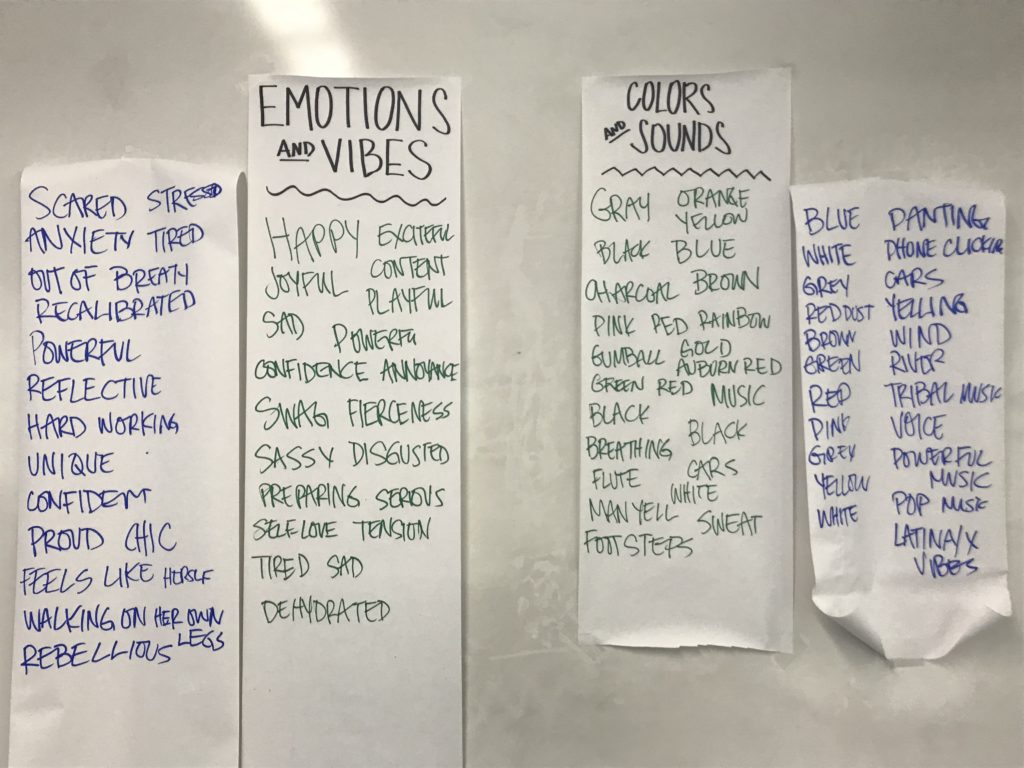 SCARED STRESSED
ANXIETY TIRED
OUT OF BREATY
RECALIBRATED
POWERFUL
REFLECTIVE
HARD WORKING
UNIQUE
CONFIDENT
PROUD CHIC
FEELS LIKE HERSELF
WALKING ON HER OWN
LEGS
REBELLIOUS
EMOTIONS
AND VIBES
HAPPY EXCITEFUL
JOYFUL CONTENT
PLAYFUL
SAD POWERFU
CONFIDENCE ANNOYANCE
SWAG FIERCENESS
SASSY DISGUSTED
PREPARING SERIOUS
SELF LOVE TENSION
TIRED SAD
DEHYDRATED
COLORS
AND SOUNDS
GRAY ORANGE
YELLOW
BLACK BLUE
CHARCOAL BROWN
PINK RED RAINBOW
GUMBALL GOLD
AUBURN RED
GREEN RED MUSIC
BLACK
BLACK
BREATHING
FLUTE CARS
WHITE
MAN YELL SWEAT
FOOTSTEPS
BLUE PANTING
WHITE PHONE CLICKING
GREY CARS
RED DUST YELLING
BROWN WIND
GREEN RIVER
RED TRIBAL MUSIC
PINK VOICE
GREY POWERFUL
MUSIC
YELLOW
WHITE POP MUSIC
LATINA/X
VIBES